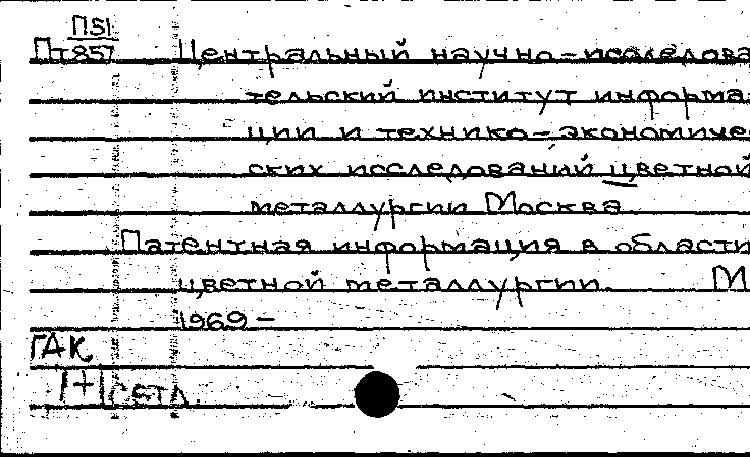 П51
Пт857 Центральный научно-исследова
тельский институт информа
ции и технико-экономиче
ских исследований цветной
металлургии Москва
Патентная информация в области
цветной металлургии. М
1969-
ГАК